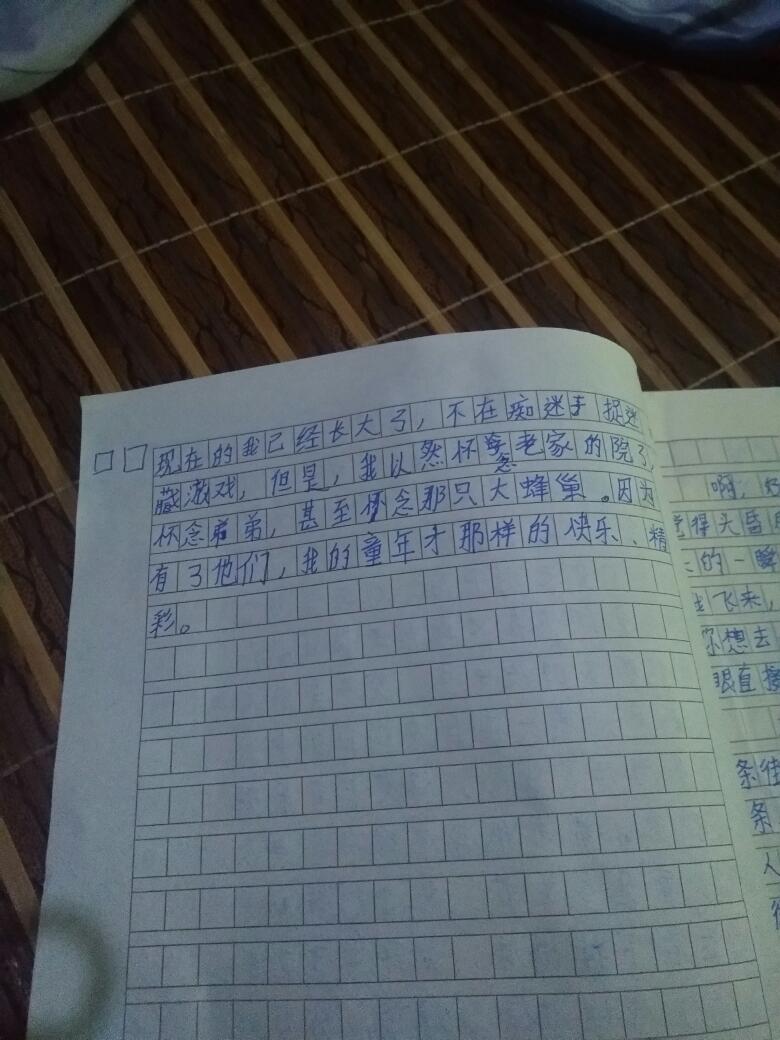 现在的我已经长大了，不在痴迷于捉迷
藏游戏，但是，我以然怀念老家的院子，
怀念弟弟，甚至怀念那只大蜂巢。因为
有了他们，我的童年才那样的快乐、精
彩。
啊，好
觉得头昏
的一瞬
飞来，
你想去
眼直接
条街
条
人